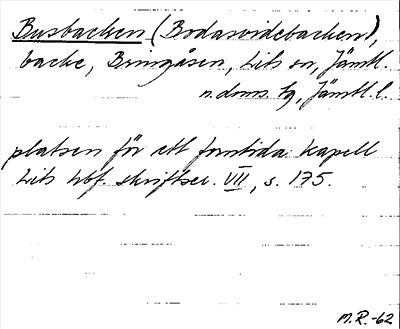 Busbacken (Bodarvidebacken),
backe, Bringåsen, Lits sn, Jämtl.
n. doms. tg, Jämtl. l.
platsen för ett forntida kapell
Lits hbf. skriftser. VII, s. 175.
M.R. -62